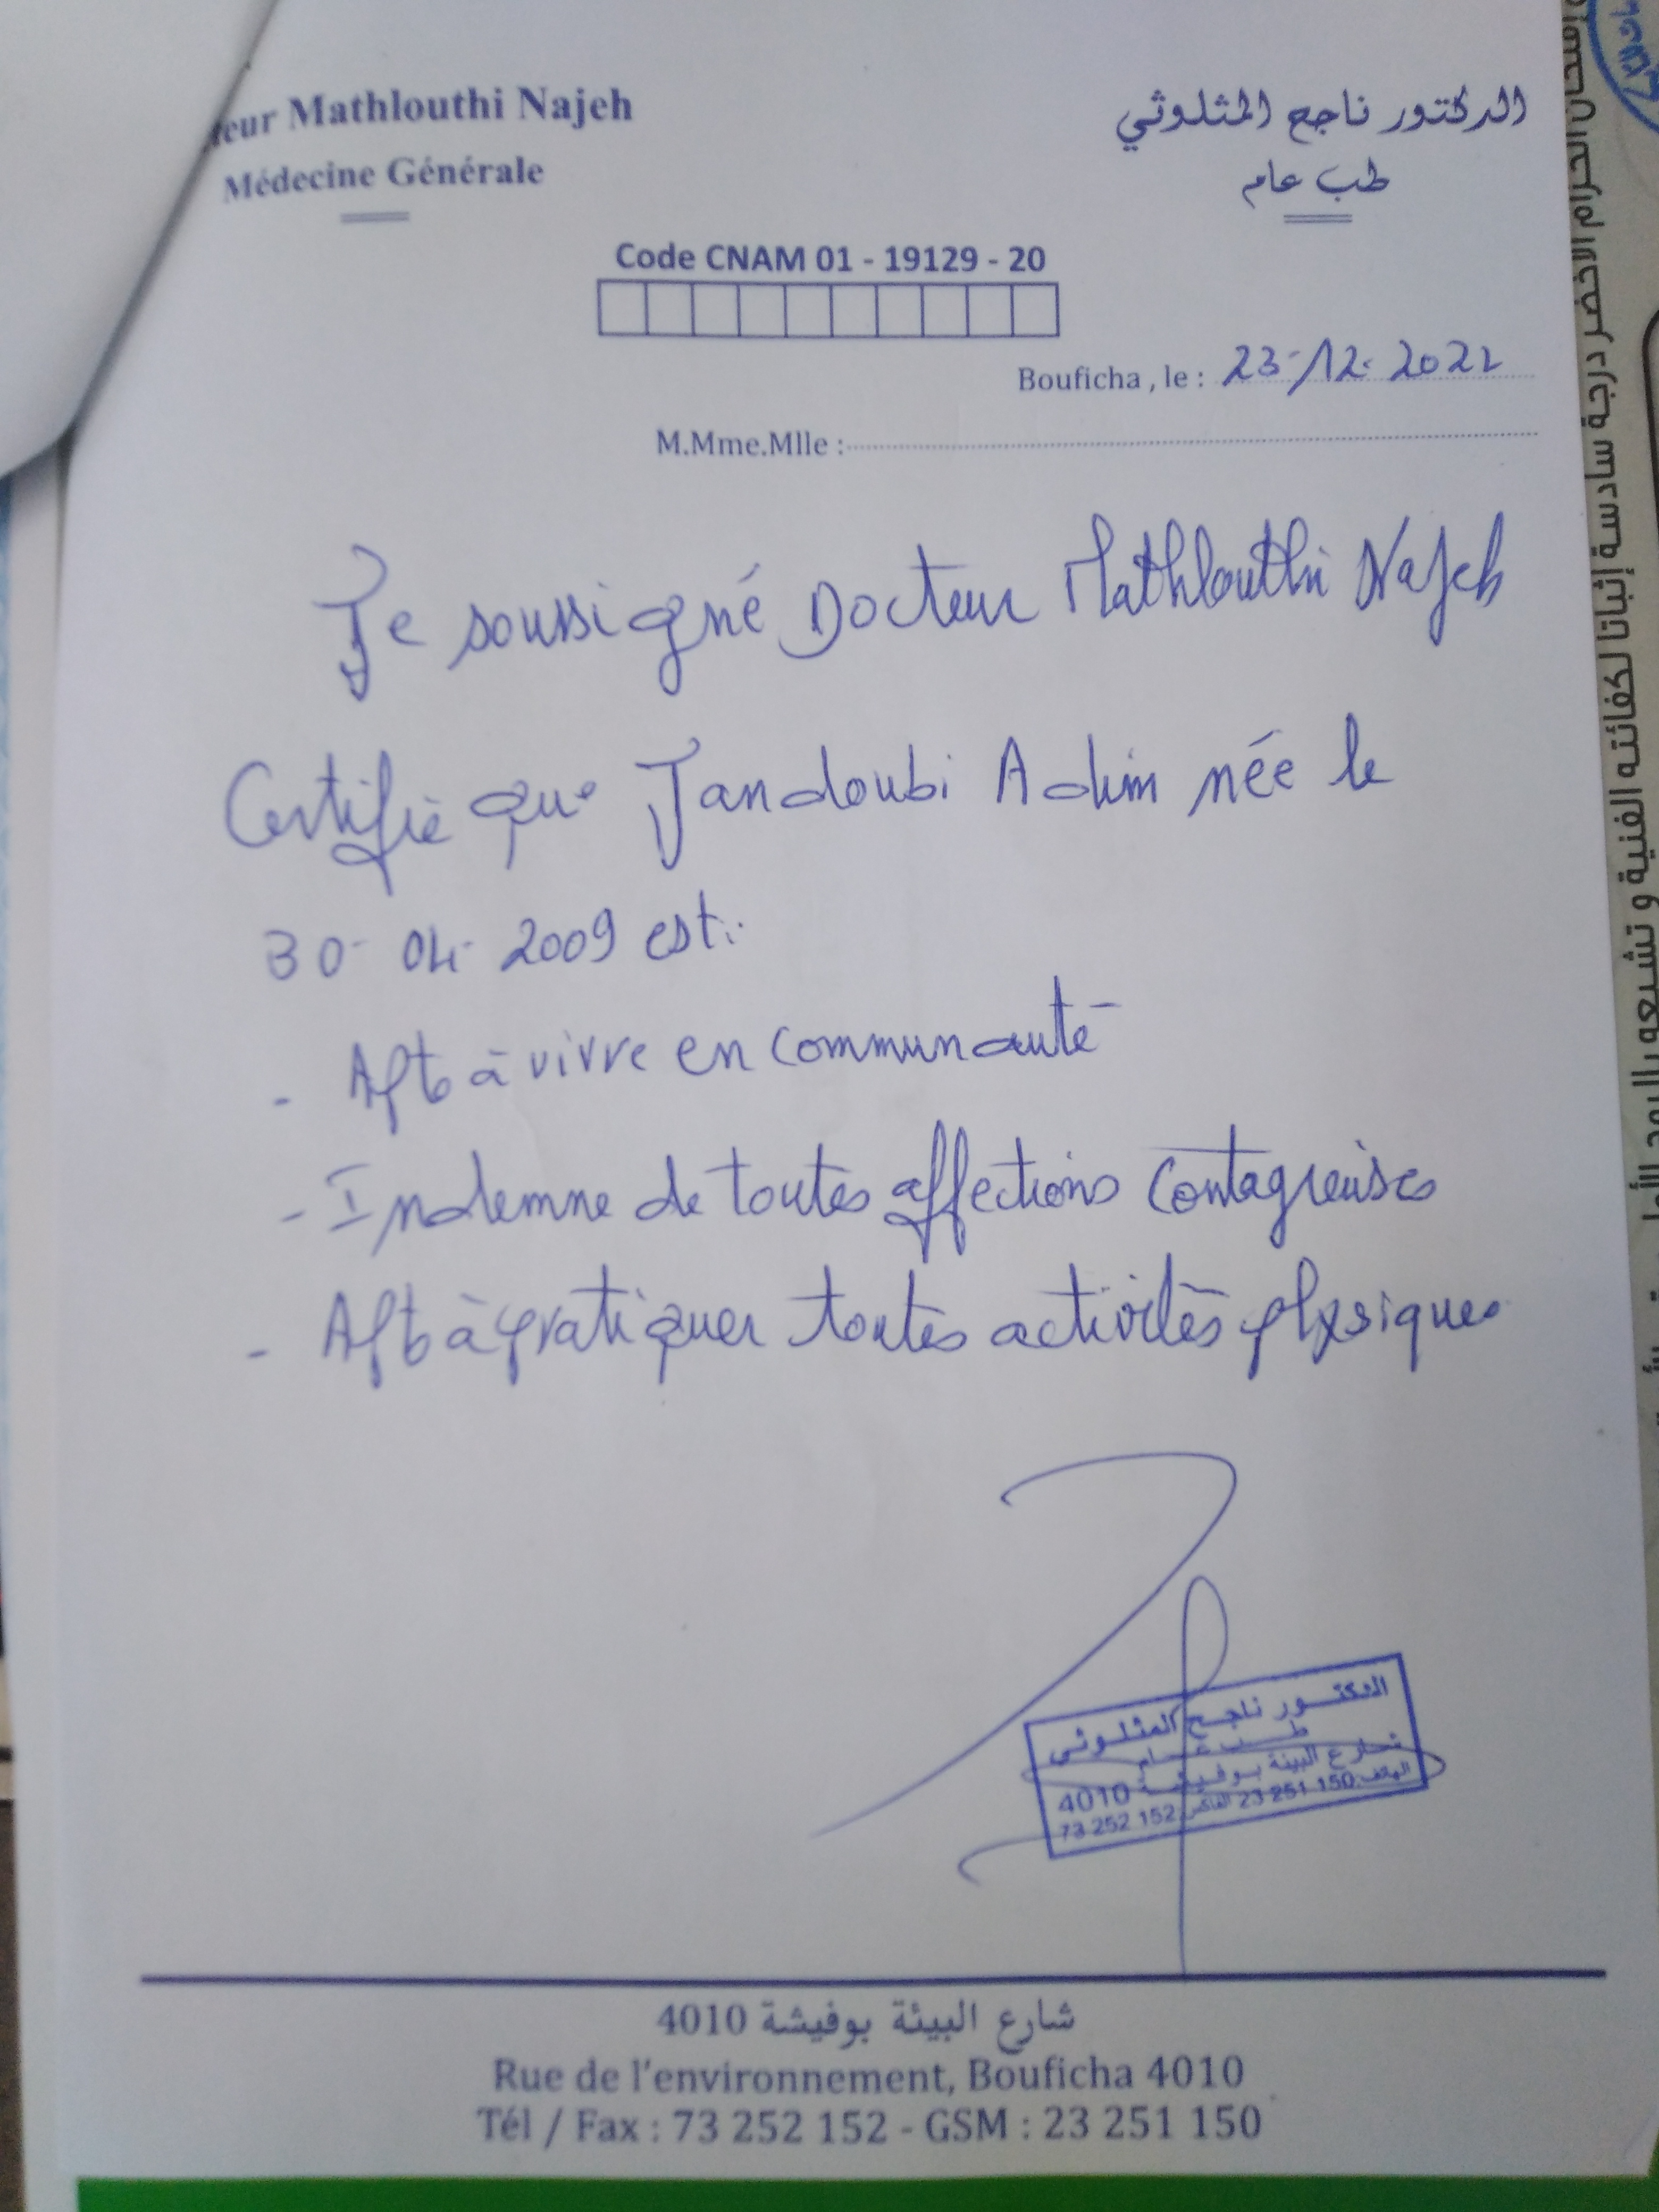 teur Mathlouthi Najeh
Médecine Générale
الدكتور ناجح المثلوثي
طب عام
Code CNAM 01 - 19129 - 20
Bouficha , le : 23-12-2022
M.Mme.Mlle :
Je soussigné Docteur Mathlouthi Najeh
Certifie que Jandoubi Adem née le
30-04-2009 est:
- Apte à vivre en communauté
- Indemne de toutes affections contagieuses
- Apte à pratiquer toutes activités physiques
الدكتور ناجح المثلوثي
طب عام
شارع البيئة بوفيشة 4010
الهاتف: 23 251 150 الفاكس: 73 252 152
شارع البيئة بوفيشة 4010
Rue de l'environnement, Bouficha 4010
Tél / Fax : 73 252 152 - GSM : 23 251 150
الحزام الأخضر درجة سادسة إثباتا لكفائته الفنية و تشبعه بالروح